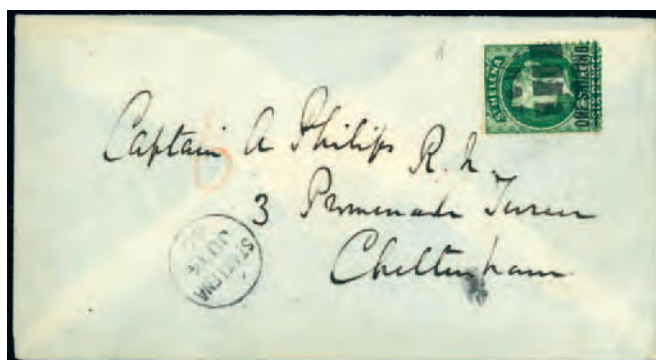 ST HELENA
ONE SHILLING
Captain A Philips R. N.
6
3 Promenade Terrace
Cheltenham
ST HELENA